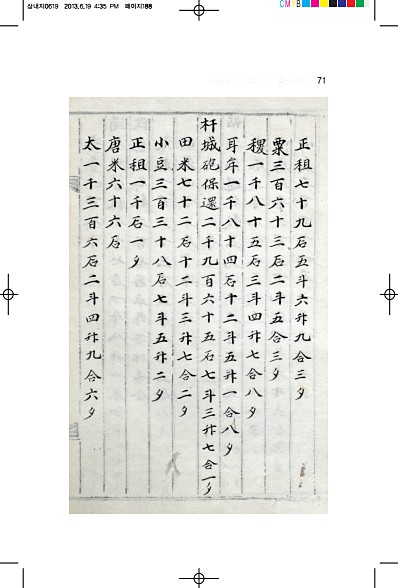 삼내지0619 2013.6.19 4:35 PM 페이지188
CMYB
71
正租七十九石五斗六升九合三夕
粟三百六十三石二斗五合三夕
稷一千八十五石三斗四升七合八夕
耳牟一千八十四石十二斗五升一合八夕
杆城砲保還二千九百六十五石七斗三升七合一夕
田米七十二石十二斗三升七合二夕
小豆三百三十八石七斗五升二夕
正租一千石一夕
唐米六十六石
太一千三百六石二斗四升九合六夕